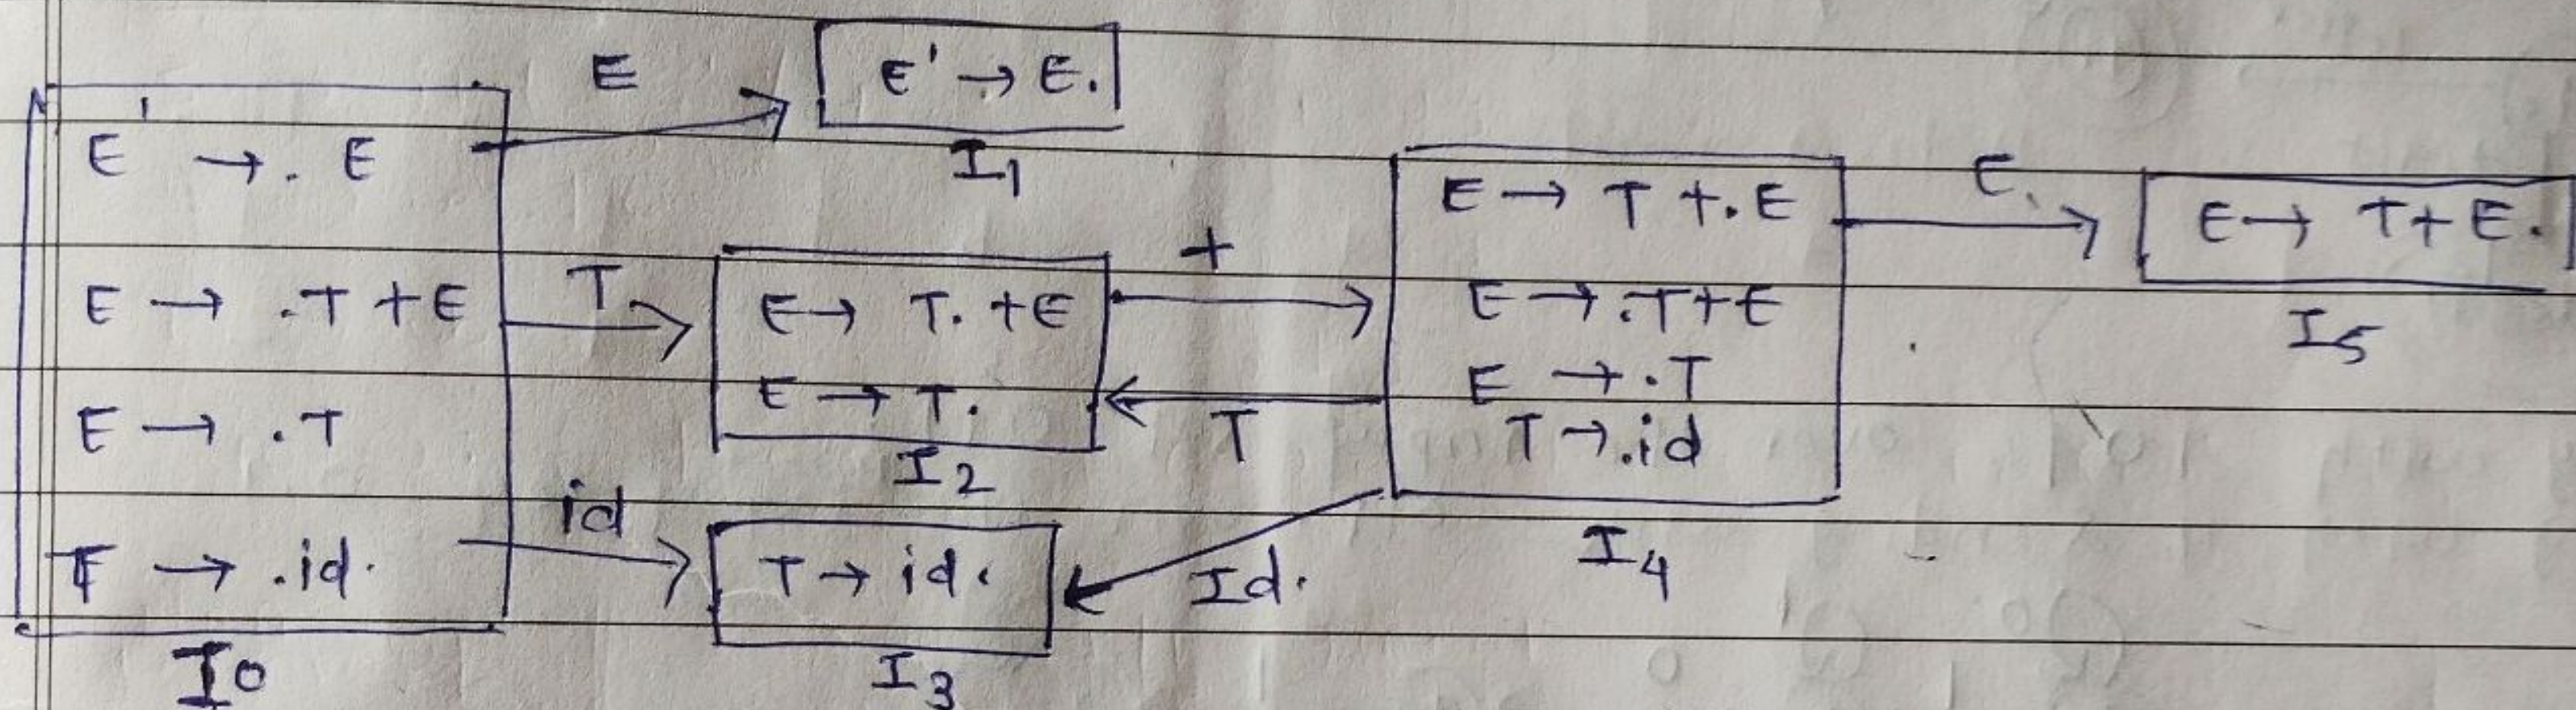 E' → . E
E → .T + E
E → .T
T → .id.
I0
E
E' → E.
I1
T
E → T. +E
E → T.
I2
id
T → id.
I3
+
T
Id.
E → T +.E
E → .T+E
E → .T
T → .id
I4
E.
E → T+E.
I5